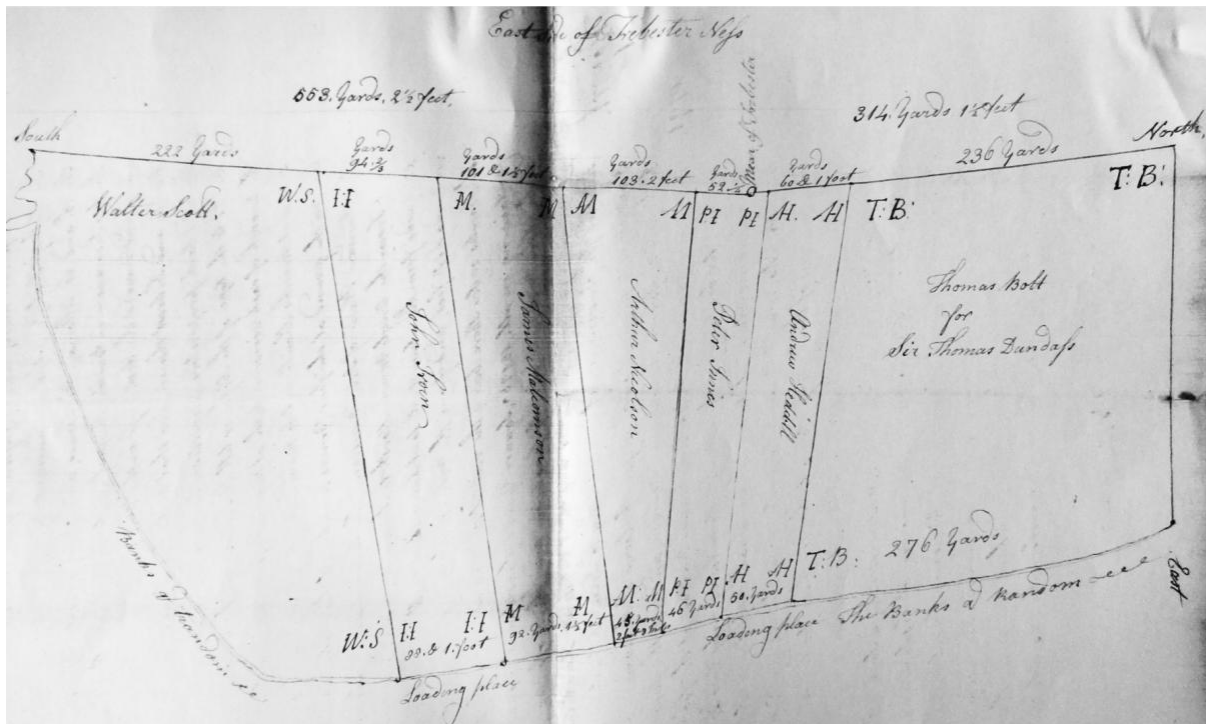 East Side of Trebester Ness
553. Yards, 2½ feet,
314. Yards 1½ feet
South
222 Yards
Yards
94⅔
Yards
101 & 1½ foot
Yards
103. 2 feet
Yards
52½
Yards
60 & 1 foot
236 Yards
North,
Walter Scott.
W.S.
I:I
M.
M
M
M
PI
PI
H.
H
T:B:
T:B:
John Iroen
James Malcomson
Arthur Nicolson
Peter Innes
Andrew Heddill
Thomas Bolt
for
Sir Thomas Dundass
Banks of Random
W:S
I:I
I:I
M
M
M:
M
PI
PI
H
H
T:B:
276 Yards
& 1. foot
92. Yards, 1½ feet
46 Yards
50. Yards
Loading place
Loading place The Banks a Random
East